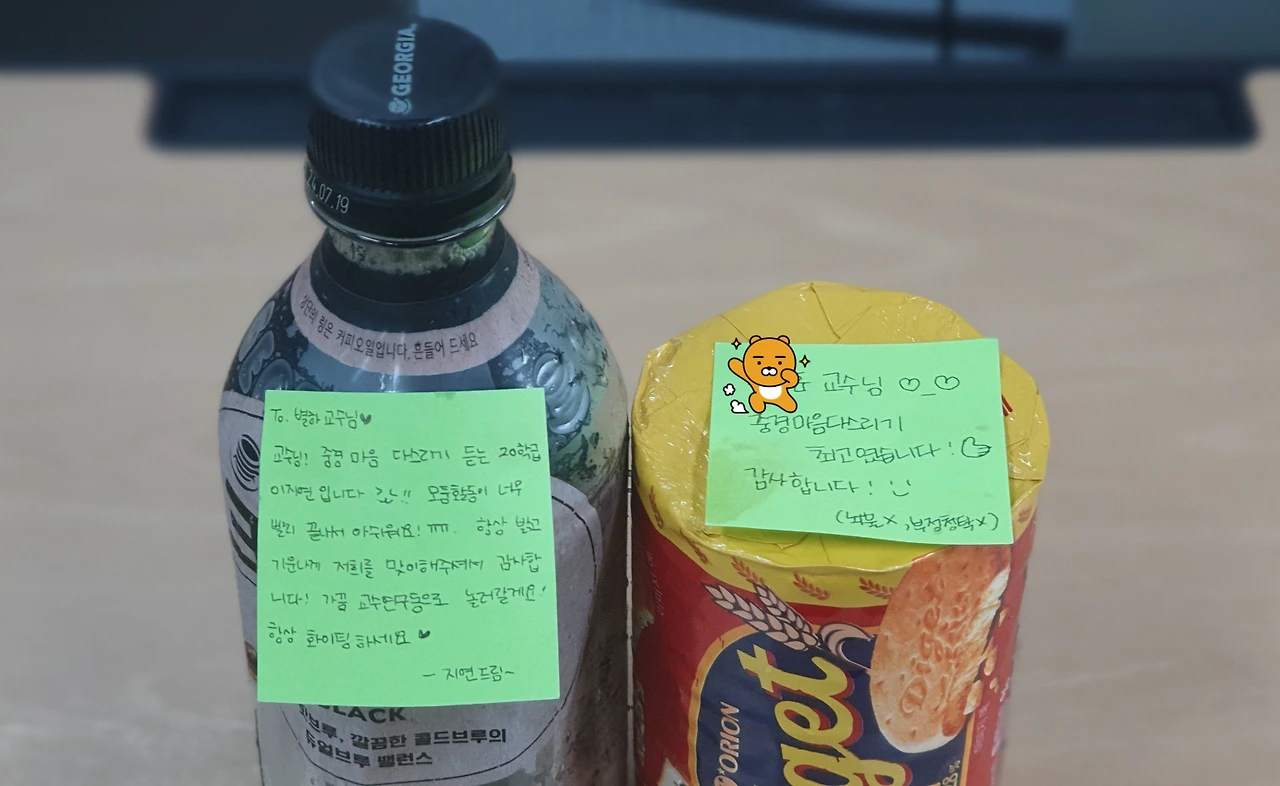 GEORGIA
24.07.19
상단의 링은 커피오일입니다. 흔들어 드세요
To. 별하 교수님♥
교수님! 중경 마음 다스리기 듣는 20학번
이지연입니다 ㅎㅎ!! 모둠활동이 너무
빨리 끝나서 아쉬워요! ㅠㅠ.. 항상 밝고
기운나게 저희를 맞이해주셔서 감사합
니다! 가끔 교수연구동으로 놀러갈게요!
항상 화이팅하세요 ♥
- 지연드림~
BLACK
콜드브루, 깔끔한 콜드브루의
듀얼브루 밸런스
교수님 ♡_♡
중경마음다스리기
최고였습니다!
감사합니다! :)
(뇌물x, 부정청탁x)
Diget
ORION
get